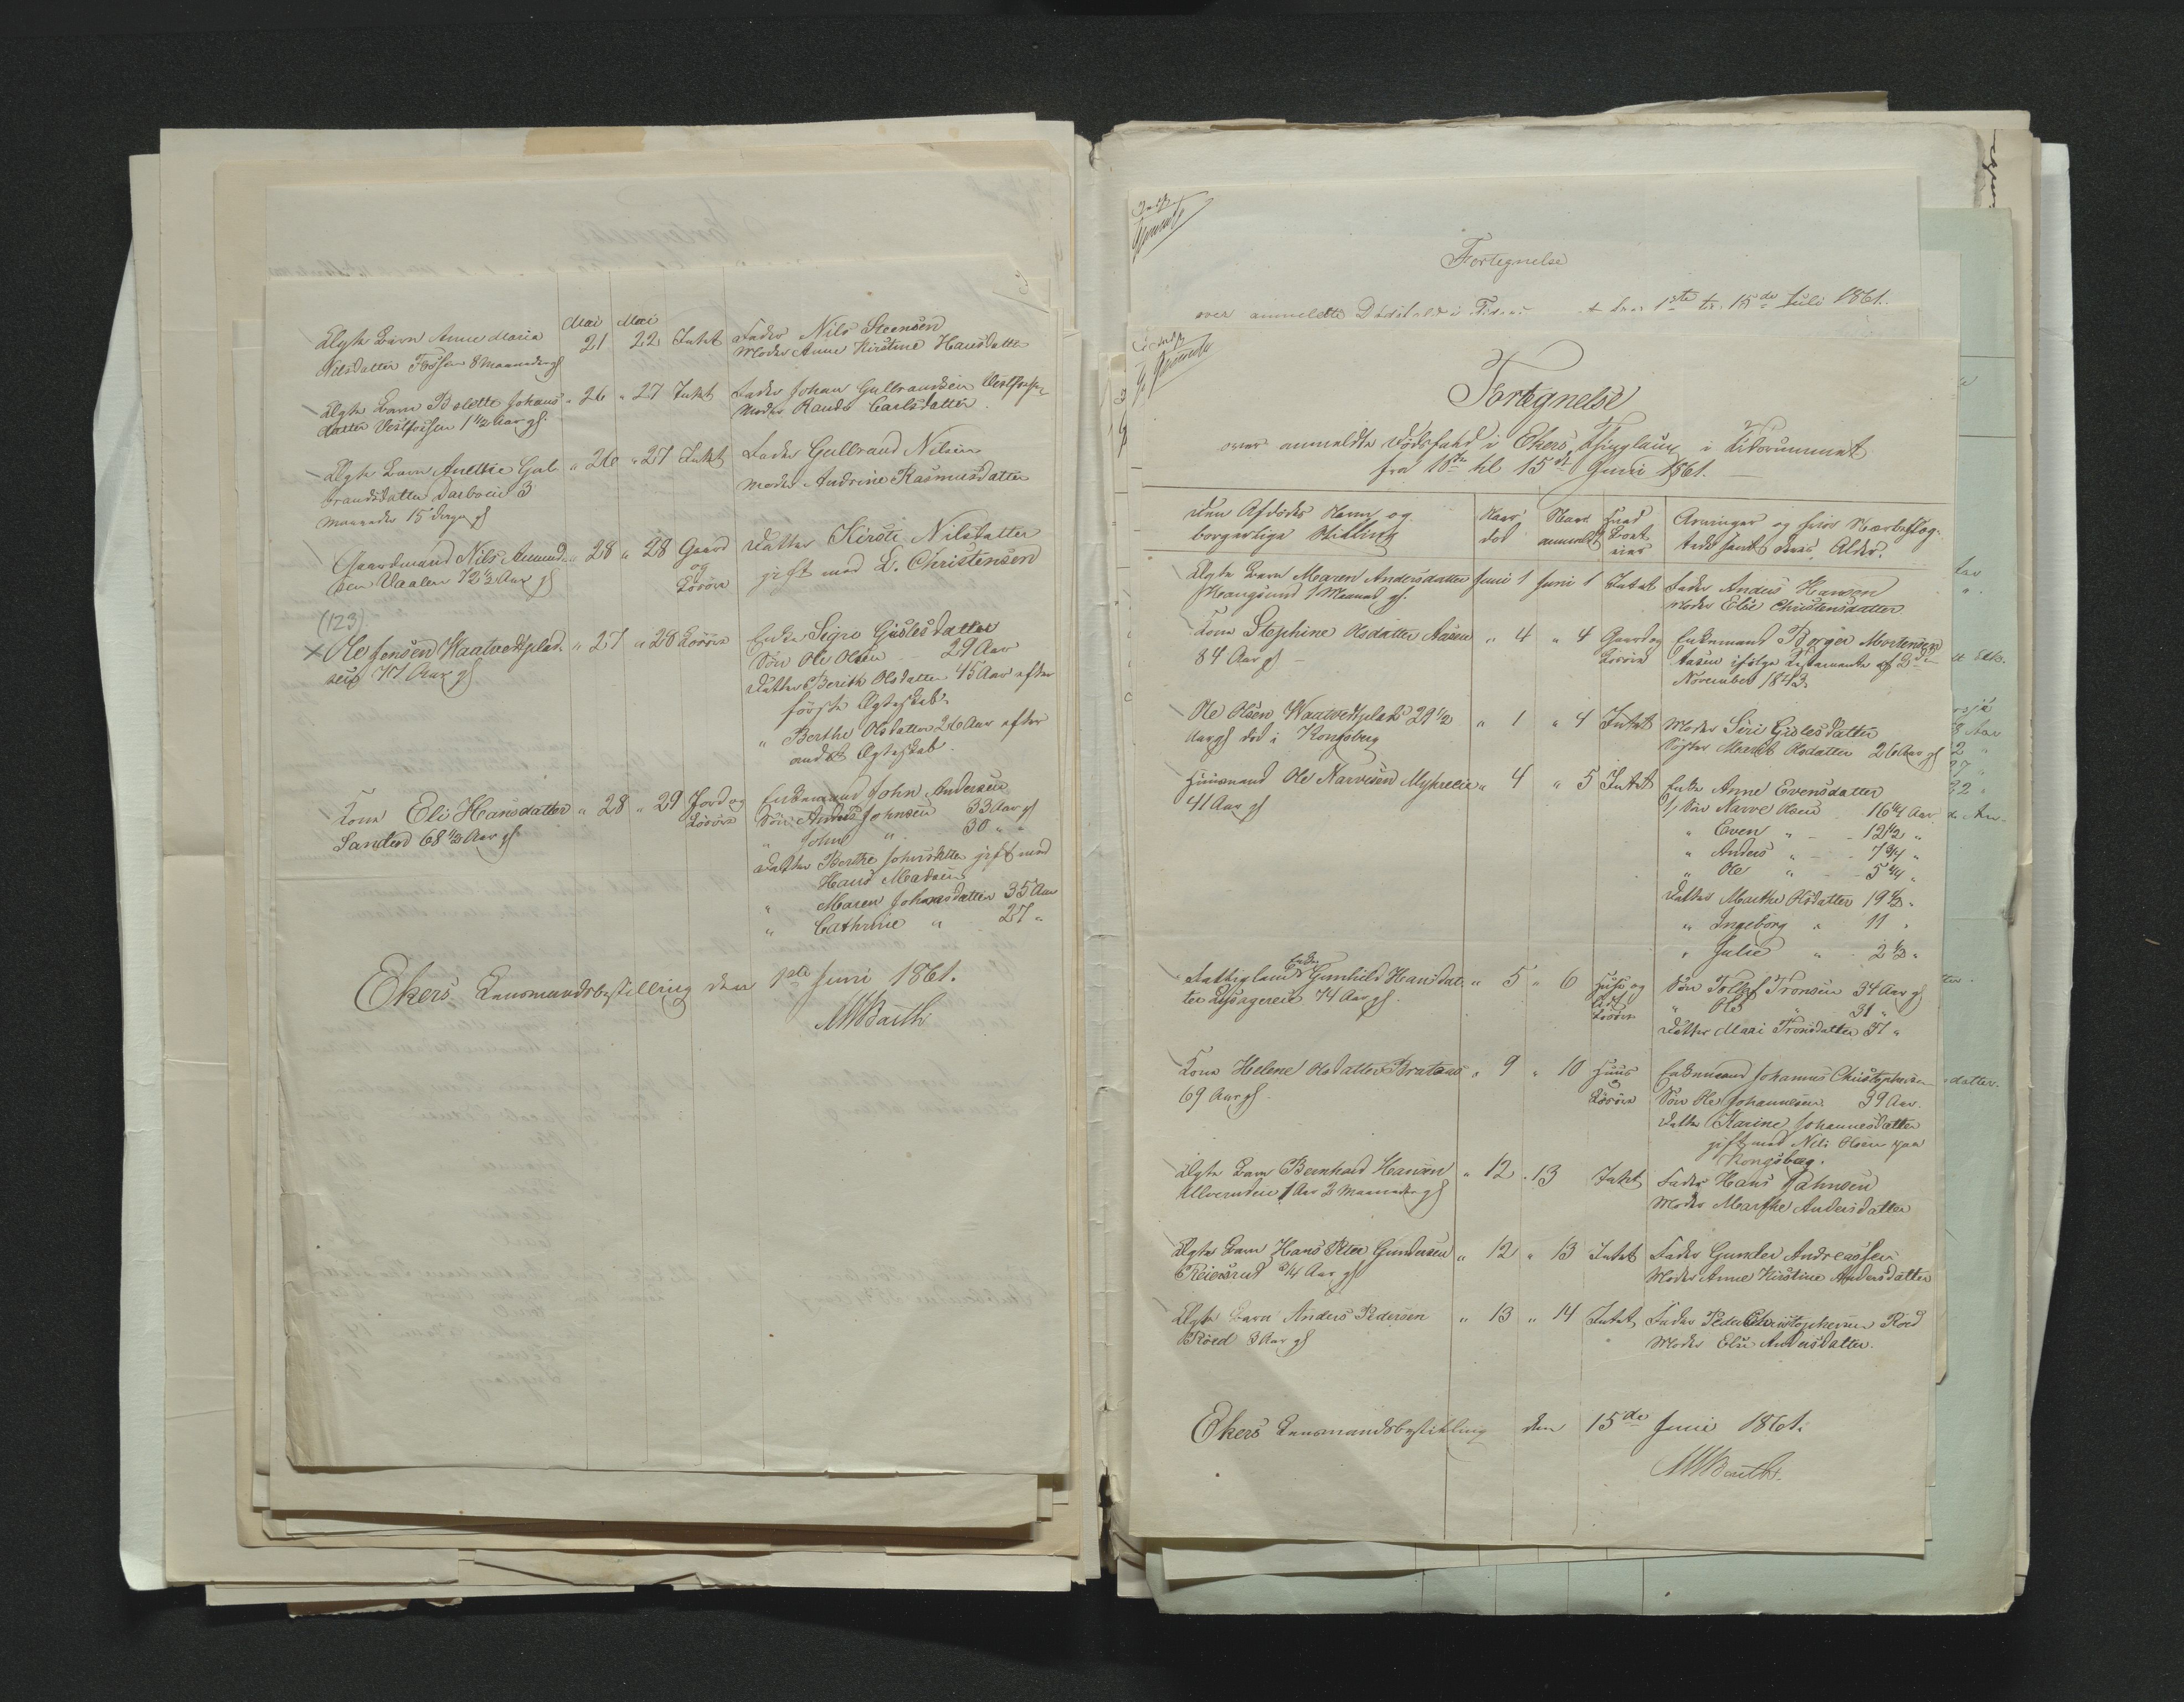 Mai Mai
Ægte Barn Anne Maria 21 22 Intet Fader Nils Steensen
Nilsdatter Fossen 8 Maaneder gl Moder Anne Kirstine Hansdatter
Ægte Barn Bolette Johans- " 26 " 27 Intet Fader Johan Gulbrandsen Vestfossen
datter Vestfossen 1 1/2 Aar gl. Moder Randi Carlsdatter.
Ægte Barn Anettie Gul- " 26 " 27 Intet Fader Gulbrand Nilsen
brandsdatter Darboeie 3 Moder Andrine Rasmusdatter
Maaneder 15 Dage gl
Gaardmand Nils Amund- " 28 " 28 Gaard Datter Kirsti Nilsdatter
sen Vaalen 72 1/2 Aar gl og Løsøre gift med L. Christensen
(123)
× Ole Jensen Waatvedtplad- " 27 " 28 Løsøre Enke Sigri Gislesdatter
sen 77 Aar gl Søn Ole Olsen 29 Aar
Datter Berith Olsdatter 45 Aar efter
første Ægteskab.
" Berthe Olsdatter 26 Aar efter
andet Ægteskab.
Kone Eli Hansdatter " 28 " 29 Jord og Enkemand John Andersen
Sanden 68 1/2 Aar gl. Løsøre Søn Anders Johnsen 33 Aar gl
" John " 30 " "
Datter Berthe Johnsdatter gift med
Hans Madsen
" Maren Johnsdatter 35 Aar
" Cathrine " 27 "
Ekers Lensmandsbestilling den 1ste Juni 1861.
MWBarth
Fortegnelse
over anmeldte Dødsfald i Tidsru t fra 1ste til 15de Juli 1861.
Fortegnelse
over anmeldte Dødsfald i Ekers Thinglaug i Tidsrummet
fra 1ste til 15de Juni 1861.
Den Afdødes Navn og Naar Naar Hvad Arvinger og hvis Nærbeslæg-
borgerlige Stilling død anmeldt Boet eier tede samt deres Alder.
Ægte Barn Maren Andersdatter Juni 1 Juni 1 Intet Fader Anders Hansen
1 Maaned gl. Moder Elie Christensdatter
Kone Stephine Olsdatter Aasen " 4 " 4 Gaard og Enkemand Børger Mortensen
84 Aar gl Løsøre Aasen ifølge Testamente af 3die
November 1843.
Ole Olsen Waatvedtplads 29 1/2 " 1 " 4 Intet Moder Siri Gislesdatter
Aar gl død i Kongsberg Søster Marthe Olsdatter 26 Aar gl
Huusmand Ole Narvesen Myhreeie " 4 " 5 Intet Enke Anne Evensdatter
41 Aar gl Søn Narve Olsen 16 1/4 Aar
" Even " 12 1/2 "
" Anders " 7 3/4 "
" Ole " 5 1/4 "
Datter Marthe Olsdatter 19 1/2 "
" Ingeborg " 11 "
" Julie " 2 1/2 "
Enke
Fattiglem Gunhild Hansdat- " 5 " 6 Huus og Søn Tollef Tronsen 34 Aar gl
ter 74 Aar gl. lidt Løsøre " Ole " 31 "
Datter Mari Tronsdatter 37 "
Kone Helene Olsdatter Brataas " 9 " 10 Huus Enkemand Johannes Christophersen
69 Aar gl. og Løsøre Søn Ole Johannesen 39 Aar.
Datter Karine Johannesdatter
gift med Nils Olsen paa
Kongsberg.
Ægte Barn Bernhard Hansen " 12 " 13 Intet Fader Hans Johnsen
1 Aar 2 Maaneder gl Moder Marthe Andersdatter
Ægte Barn Hans Peter Gundersen " 12 " 13 Intet Fader Gunder Andreassen
Reiersrud 3/4 Aar gl Moder Anne Kirstine Andersdatter
Ægte Barn Anders Pedersen " 13 " 14 Intet Fader Peder Christophersen Röed
Röed 3 Aar gl Moder Elsi Andersdatter.
Ekers Lensmandsbestilling den 15de Juni 1861.
MWBarth.